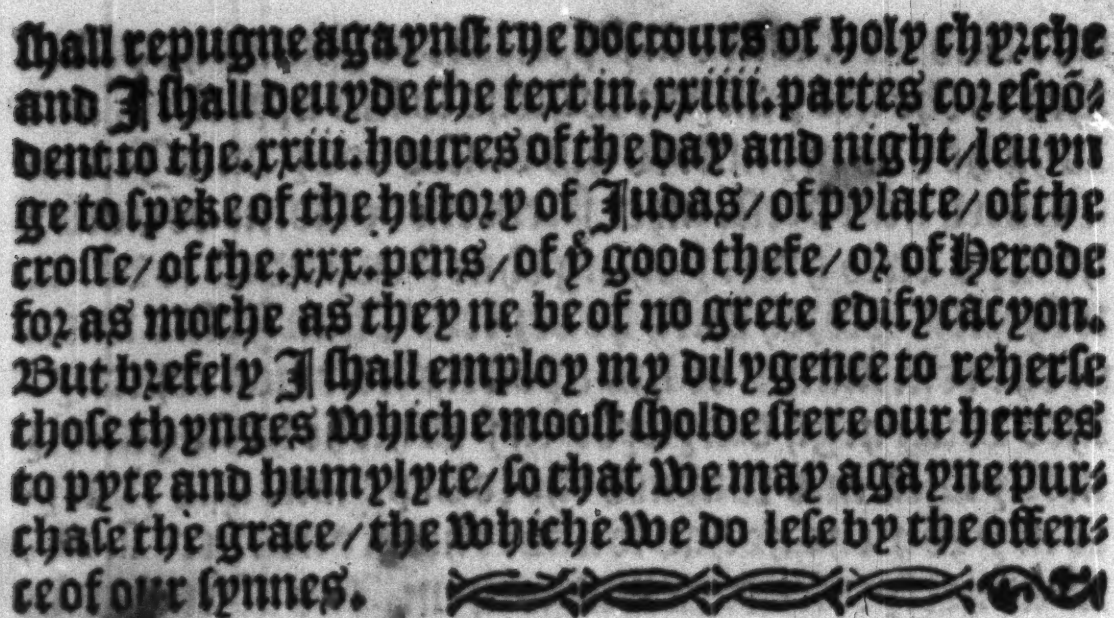 ſhall repugne agaynſt the doctours of holy chyrche
and I ſhall deuyde the text in.xxiiii.partes coreſpõ⸗
dent to the.xxiii.houres of the day and night/leuyn
ge to ſpeke of the hiſtory of Judas/of pylate/of the
croſſe/of the.xxx.pens/of yͤ good thefe/or of Herode
for as moche as they ne be of no grete edifycacyon.
But brefely I ſhall employ my dilygence to reherſe
thoſe thynges whiche mooſt ſholde ſtere our hertes
to pyte and humylyte/ſo that we may agayne pur⸗
chaſe the grace/the whiche we do leſe by the offen⸗
ce of our ſynnes.